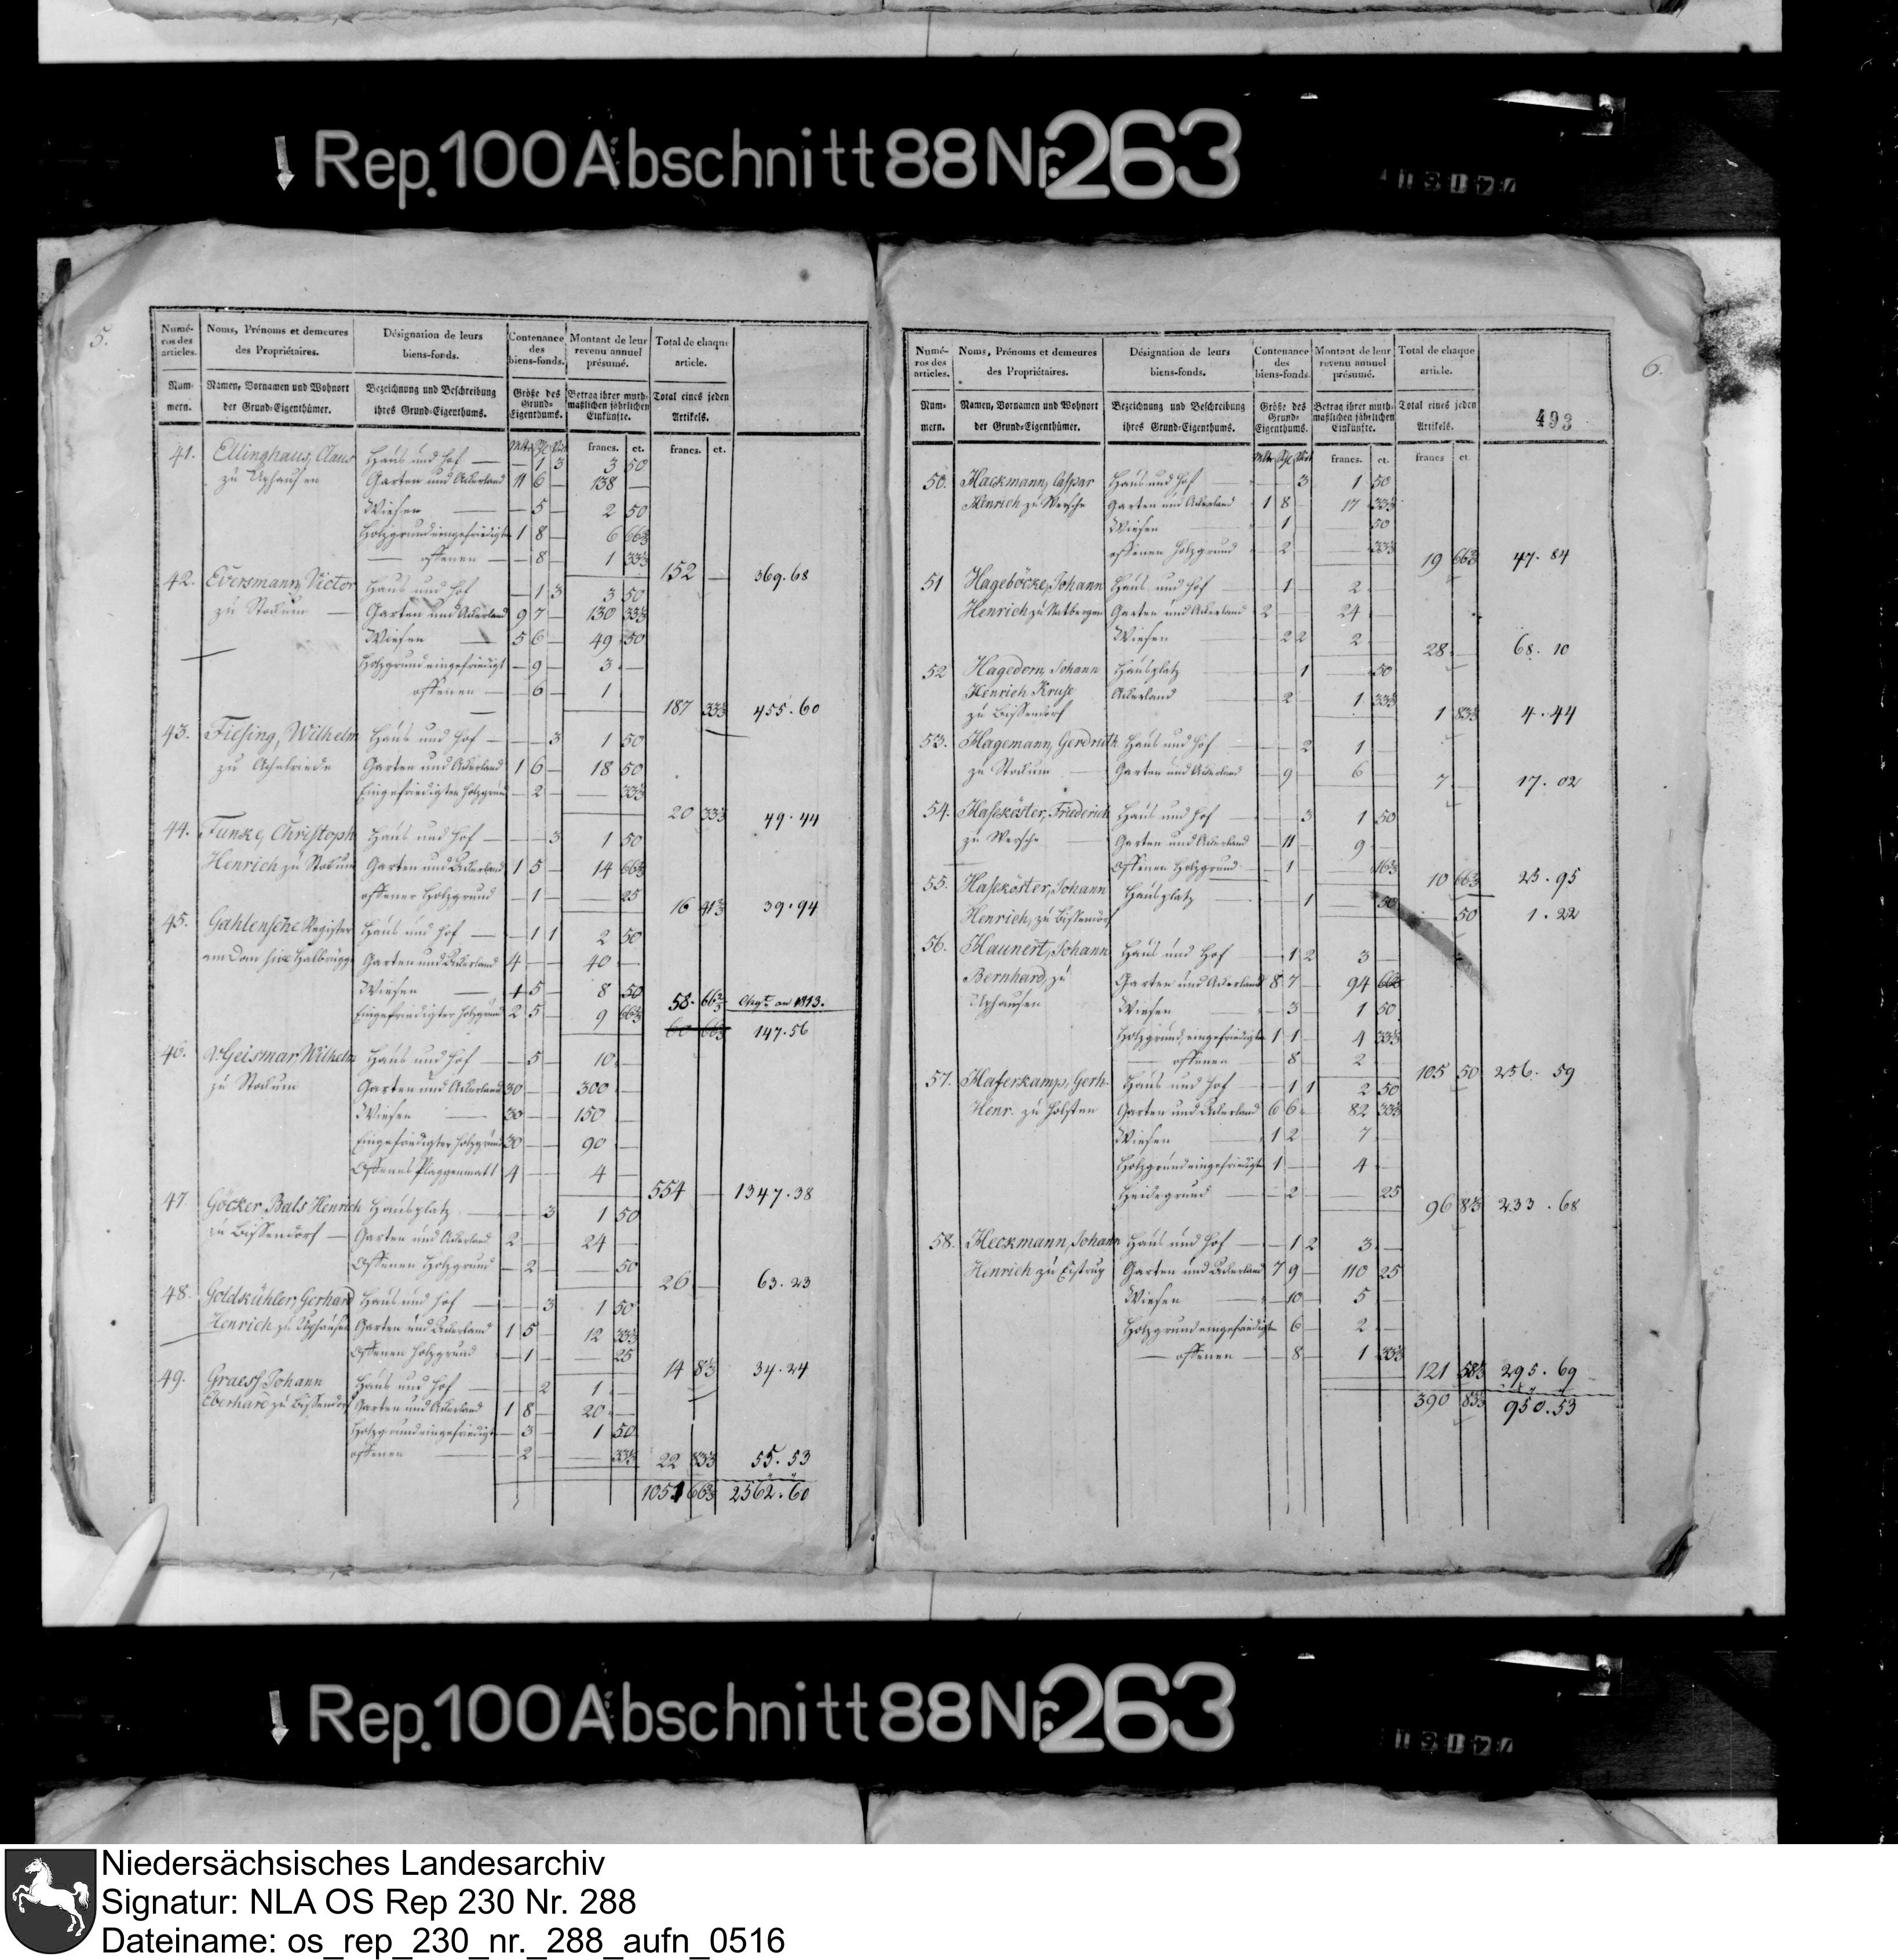 Rep. 100 Abschnitt 88 Nr. 263
5.
Numé-ros des articles. Noms, Prénoms et demeures des Propriétaires. Désignation de leurs biens-fonds. Contenance des biens-fonds. Montant de leur revenu annuel présumé. Total de chaque article.
Num-mern. Namen, Vornamen und Wohnort der Grund-Eigenthümer. Bezeichnung und Beschreibung ihres Grund-Eigenthums. Größe des Grund-Eigenthums. Betrag ihrer muth-maßlichen jährlichen Einkünfte. Total eines jeden Artikels.
francs. ct. francs. ct.
41. Ellinghaus, Claus Haus und Hof — — 1 3 3 50
zu Uphausen Garten und Ackerland 11 6 — 138 —
Wiesen — — 5 — 2 50
Holzgrund eingefriedigt 1 8 — 6 66⅔
— offenen — — 8 — 1 33⅓
152 — 369.68
42. Eversmann, Victor Haus und Hof — 1 3 3 50
zu Stockum — Garten und Ackerland 9 7 — 130 33⅓
Wiesen — 5 6 — 49 50
Holzgrund eingefriedigt — 9 — 3 —
offenen — — 6 — 1
187 33⅓ 455.60
43. Fiesing, Wilhelm Haus und Hof — — — 3 1 50
zu Achelriede Garten und Ackerland 1 6 — 18 50
Eingefriedigten Holzgrund — 2 — — 33⅓
20 33⅓ 49.44
44. Funke, Christoph Haus und Hof — — — 3 1 50
Henrich zu Stockum Garten und Ackerland 1 5 — 14 66⅔
offener Holzgrund — 1 — — 25
16 41⅔ 39.94
45. Gahlensche Register Haus und Hof — — 1 1 2 50
am Dom Garten und Ackerland 4 — — 40 —
Wiesen — 1 5 — 8 50
Eingefriedigter Holzgrund 2 5 — 9 66⅔
58. 66⅔ Chgt. an 1813.
60 66⅔ 147.56
46. v. Geismar Wilhelm Haus und Hof — — 5 — 10 —
zu Stockum Garten und Ackerland 30 — — 300 —
Wiesen — 30 — — 150 —
Eingefriedigter Holzgrund 30 — — 90 —
Offenes Plaggenmatt 4 — — 4 —
554 — 1347.38
47. Göcker Bals Henrich Hausplatz — — — 3 1 50
zu Bissendorf — Garten und Ackerland 2 — — 24 —
Offenen Holzgrund — 2 — — 50
26 — 63.23
48. Goldkühler, Gerhard Haus und Hof — — — 3 1 50
Henrich zu Uphausen Garten und Ackerland 1 5 — 12 33⅓
Offenen Holzgrund — 1 — — 25
14 8⅓ 34.24
49. Graess, Johann Haus und Hof — — — 2 1 —
Eberhard zu Bissendorf Garten und Ackerland 1 8 — 20 —
Holzgrund eingefriedigt — 3 — 1 50
offenen — — 2 — — 33⅓
22 83⅓ 55.53
1051 66⅔ 2562.60
6.
Numé-ros des articles. Noms, Prénoms et demeures des Propriétaires. Désignation de leurs biens-fonds. Contenance des biens-fonds. Montant de leur revenu annuel présumé. Total de chaque article.
Num-mern. Namen, Vornamen und Wohnort der Grund-Eigenthümer. Bezeichnung und Beschreibung ihres Grund-Eigenthums. Größe des Grund-Eigenthums. Betrag ihrer muth-maßlichen jährlichen Einkünfte. Total eines jeden Artikels.
493
francs. ct. francs ct.
50. Hackmann, Caspar Haus und Hof — — — 3 1 50
Henrich zu Wersche Garten und Ackerland 1 8 — 17 33⅓
Wiesen — 1 50
offenen Holzgrund — 2 — — 33⅓
19 66⅔ 47.84
51 Hageböcke, Johann Haus und Hof — 1 — 2 —
Henrich zu Natbergen Garten und Ackerland 2 — — 24 —
Wiesen — — 2 2 2 —
28 — 68.10
52 Hagedorn, Johann Hausplatz — 1 — 50
Henrich Kruse Ackerland — 2 — 1 33⅓
zu Bissendorf
1 83⅓ 4.44
53. Hagemann, Gerdruth Haus und Hof — — — 2 1 —
zu Stockum — Garten und Ackerland — 9 — 6 —
7 — 17.02
54. Haseköster, Friederich Haus und Hof — 3 1 50
zu Wersche — Garten und Ackerland — 11 — 9 —
Offenen Holzgrund — — 1 — — 16⅔
10 66⅔ 25.95
55. Haseköster, Johann Hausplatz — 1 — 50
Henrich, zu Bissendorf
— 50 1.22
56. Haunert, Johann Haus und Hof — 1 2 3 —
Bernhard, zu Garten und Ackerland 8 7 — 94 66⅔
Uphausen Wiesen — — 3 — 1 50
Holzgrund, eingefriedigt 1 1 — 4 33⅓
— offenen — — 8 — 2 —
105 50 256.59
57. Haferkamp, Gerh. Haus und Hof — — 1 1 2 50
Henr. zu Holsten Garten und Ackerland 6 6 — 82 33⅓
Wiesen — 1 2 — 7 —
Holzgrund eingefriedigt 1 — — 4 —
Heidegrund — — 2 — — 25
96 8⅓ 233.68
58. Heckmann, Johann Haus und Hof — — 1 2 3 —
Henrich zu Eistrup Garten und Ackerland 7 9 — 110 25
Wiesen — — 10 — 5 —
Holzgrund eingefriedigt — 6 — 2 —
— offenen — — 8 — 1 33⅓
121 58⅓ 295.69
390 83⅓ 950.53
Rep. 100 Abschnitt 88 Nr. 263
Niedersächsisches Landesarchiv
Signatur: NLA OS Rep 230 Nr. 288
Dateiname: os_rep_230_nr._288_aufn_0516